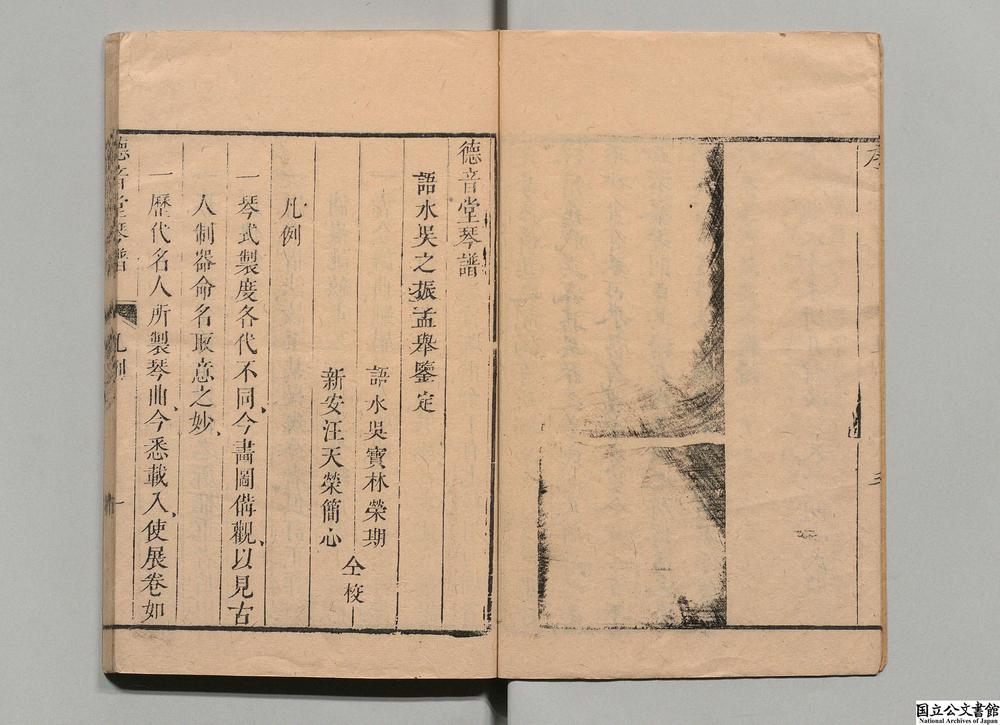 序
德音堂琴譜
語水吳之振孟舉鑒定
語水吳寶林榮期
新安汪天榮簡心
仝校
凡例
一琴式製度各代不同、今畫圖備觀、以見古
人制器命名取意之妙、
一歷代名人所製琴曲、今悉載入、使展卷如
德音堂琴譜
凡例
一
国立公文書館
National Archives of Japan